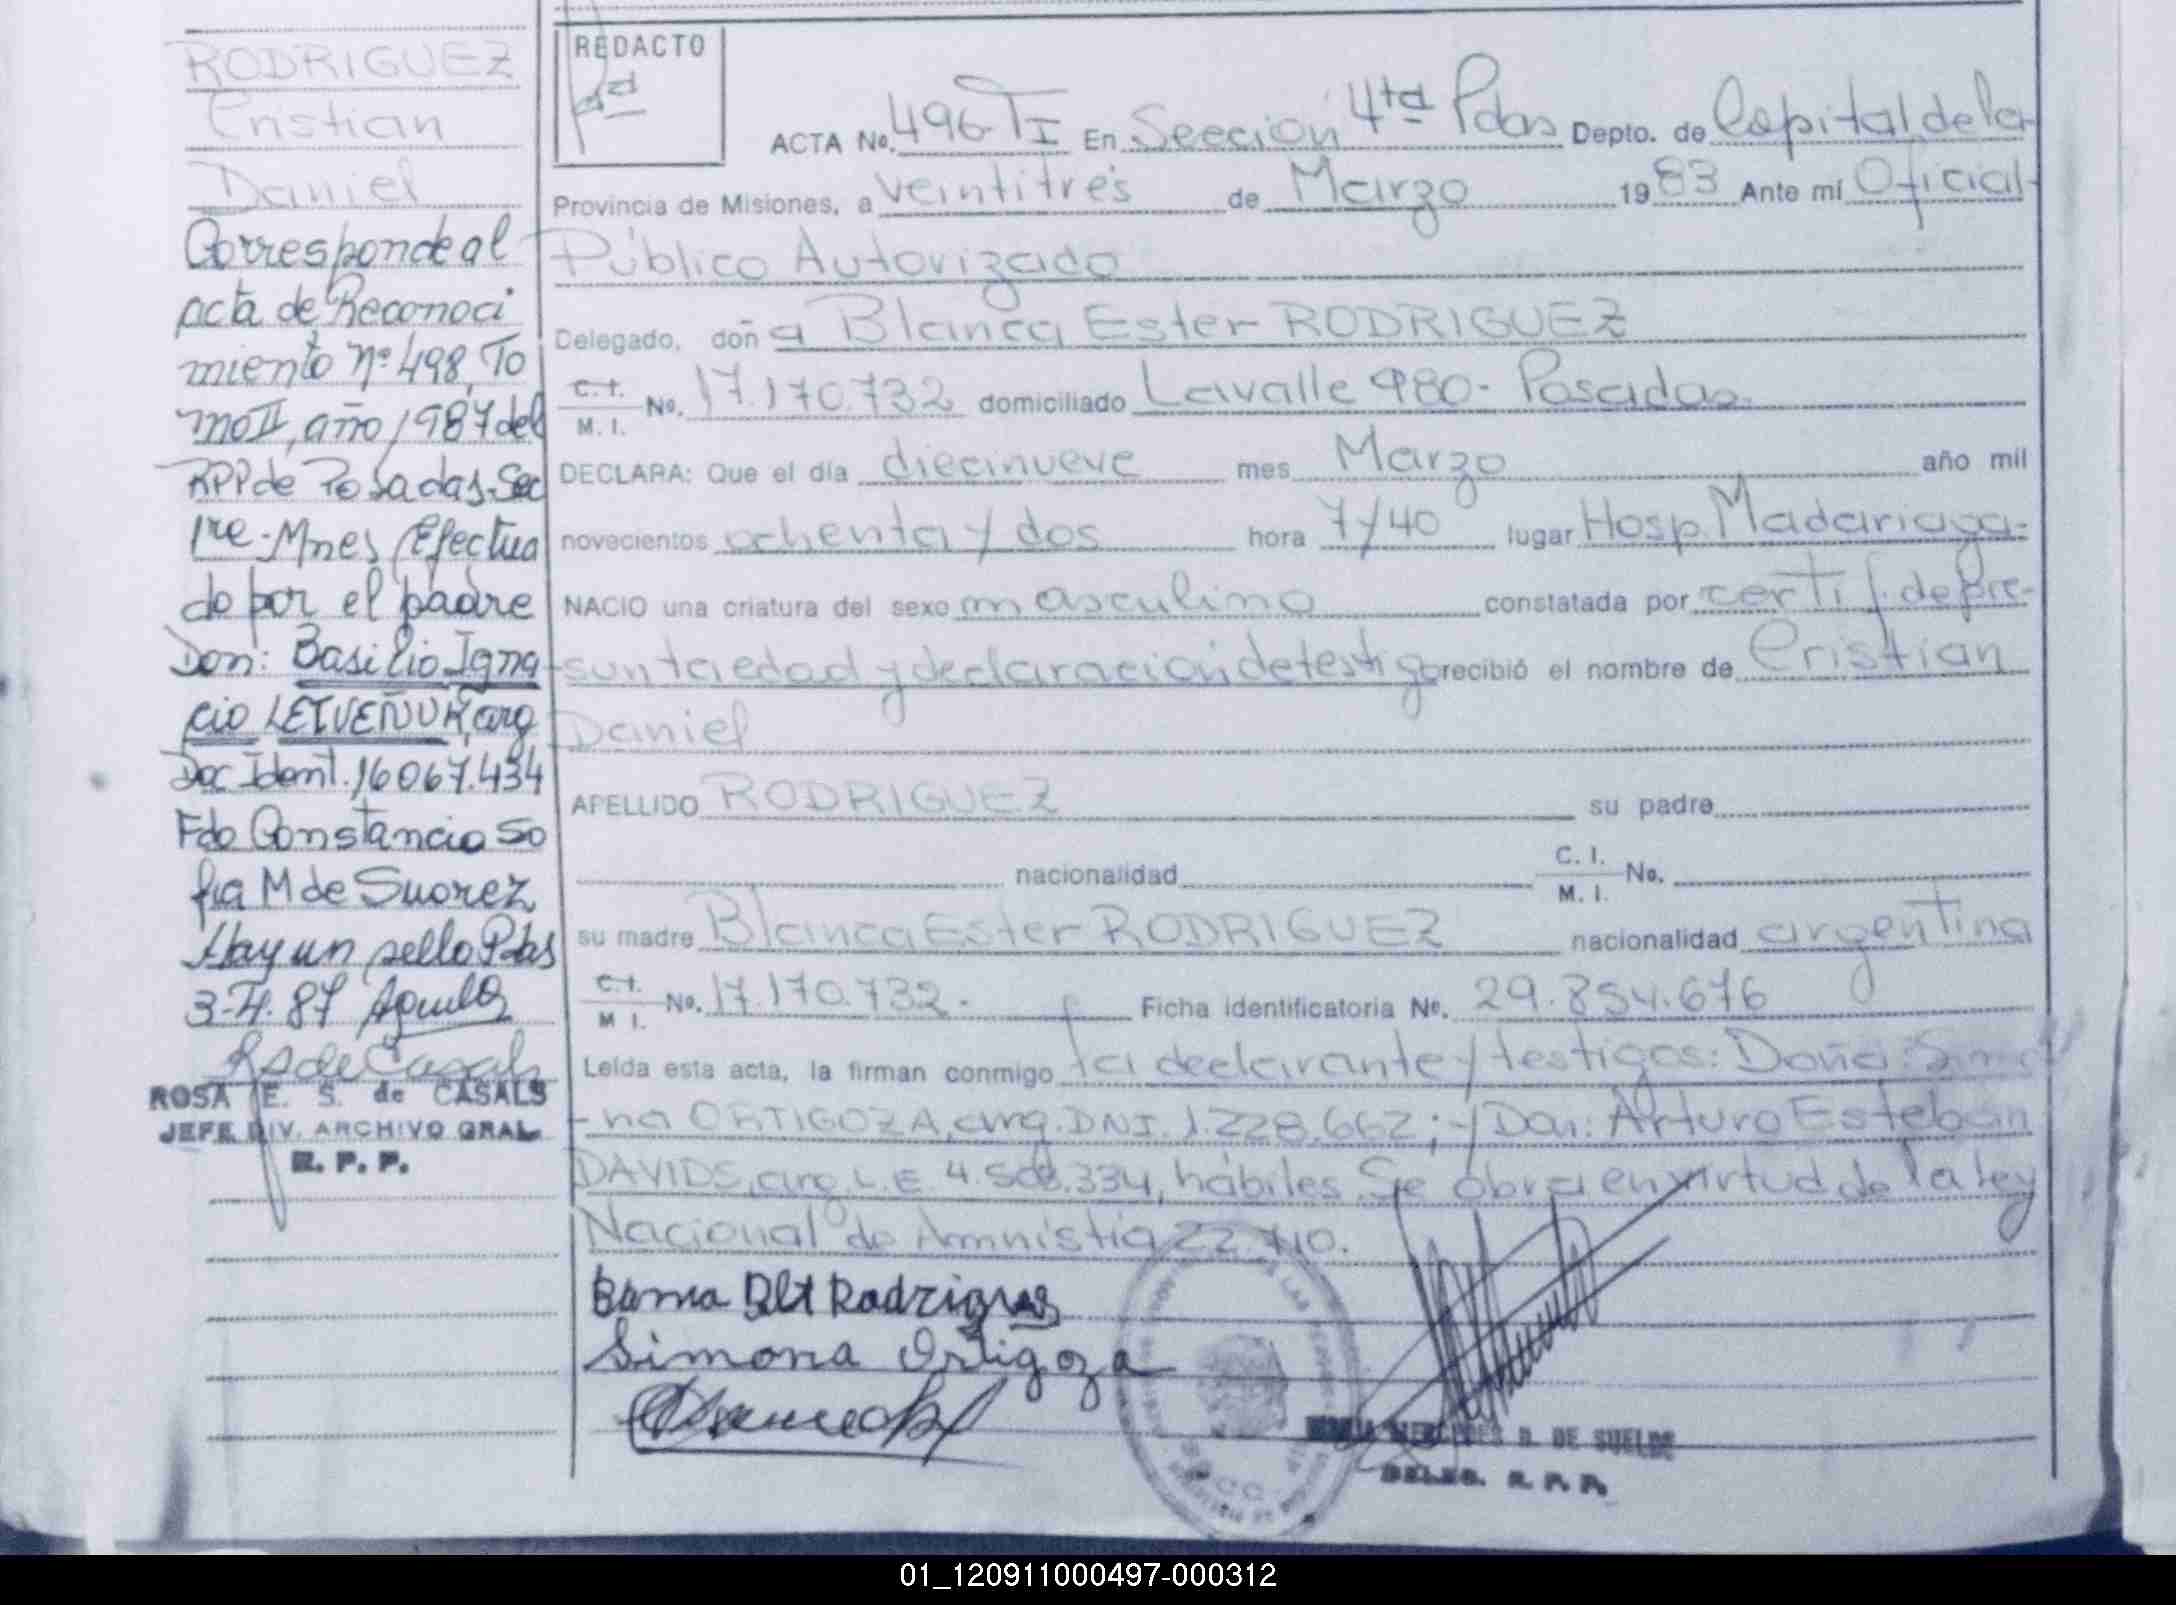 RODRIGUEZ
Cristian
Daniel
Corresponde al
acta de Reconoci
miento Nº 498, To
mo II, año 1987 del
RPP de Posadas-Sec
1re-Mnes, Efectua
do por el padre
Don: Basilio Igna
cio LETVEÑUK, arg
Doc Ident. 16067.434
Fdo Constancia So
fia M de Suarez
Hay un sello Pdas
3-4-87
RS de Casals
ROSA E. S. de CASALS
JEFE DIV. ARCHIVO GRAL
R. P. P.
REDACTO
ACTA No. 496 TI En Sección 4ta Pdas Depto. de Capital de la
Provincia de Misiones, a veintitrés de Marzo 1983 Ante mí Oficial
Público Autorizado
Delegado, doña Blanca Ester RODRIGUEZ
C.I.
M. I. No. 17.170.732 domiciliado Lavalle 980- Posadas
DECLARA: Que el día diecinueve mes Marzo año mil
novecientos ochenta y dos hora 7/40 lugar Hosp. Madariaga-
NACIO una criatura del sexo masculino constatada por certif. de pre-
sunta edad y declaración de testigo recibió el nombre de Cristian
Daniel
APELLIDO RODRIGUEZ su padre
nacionalidad C. I.
M. I. No.
su madre Blanca Ester RODRIGUEZ nacionalidad argentina
C.I.
M I. No. 17.170.732. Ficha identificatoria No. 29.854.676
Leída esta acta, la firman conmigo la declarante y testigos: Doña: Simo
-na ORTIGOZA, arg. DNI. 1.228.662; y Don: Arturo Esteban
DAVIDS, arg. L.E. 4.508.334, hábiles. Se obra en virtud de la ley
Nacional de Amnistía 22.410.
Simona Ortigoza
MERCEDES B. DE SUELDE
DELEG. R. P. P.
01_120911000497-000312